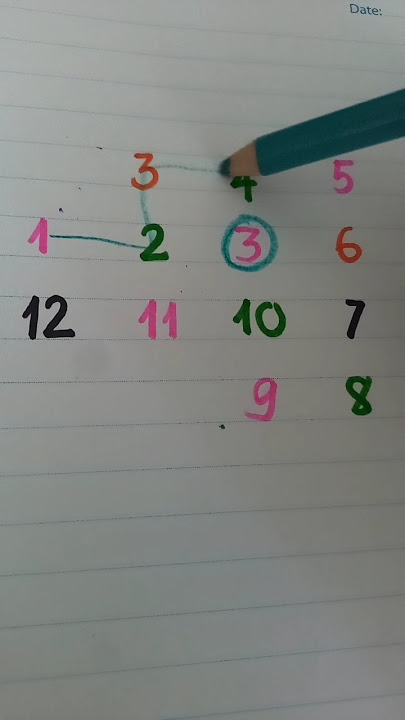 Date:
3 4 5
1 2 3 6
12 11 10 7
9 8